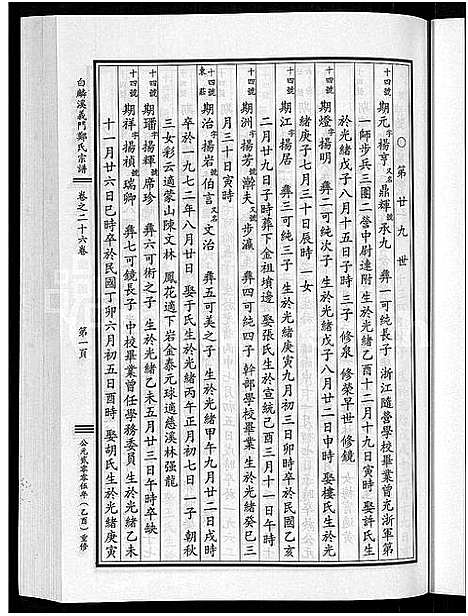 ○第廿九世
十四號 期元字揚亨又名鼎輝 承九 彝一可純長子 浙江隨營學校畢業曾充浙軍第
一師步兵三團二營中尉連附 生於光緒乙酉十二月十九日寅時 娶許氏生
於光緒戊子八月十五日子時 三子 修泉 修榮早世 修鏡
十四號 期燈字揚明 彝二可純次子 生於光緒戊子八月廿二日申時 娶樓氏生光
緒庚子七月三十日辰時 一女
十四號 期江字揚居 彝三可純三子 生於光緒庚寅九月初三日卯時卒於民國乙亥
二月廿九日子時葬下金祖墳邊 娶張氏生於宣統己酉三月十一日午時
十四號 期洲字揚芳 瀚夫又號步瀛 彝四可純四子 幹部學校畢業 生於光緒癸巳三
月三十日寅時
十四號東莊 期治字揚岩 伯言又名文治 彝五可美之子 生於光緒甲午九月廿二日戌時
卒於一九七二年八月 娶于氏生於光緒丙午正月初七日 一子 朝秋
三女彩云適蒙山陳文林 鳳花適下岩金泰元球適慈溪林强龍
十四號 期璠字揚輝 席珍 彝六可術之子 生於光緒乙未五月廿三日午時卒缺
十四號 期祥字揚楨 瑞卿 彝七可鏡長子 中校畢業曾任學務委員 生於光緒乙未
十一月廿六日巳時卒於民國丁卯六月初五日酉時 娶胡氏生於光緒庚寅
白麟溪義門鄭氏宗譜
卷之二十六卷
第一頁
公元貳零零伍年（乙酉）重修